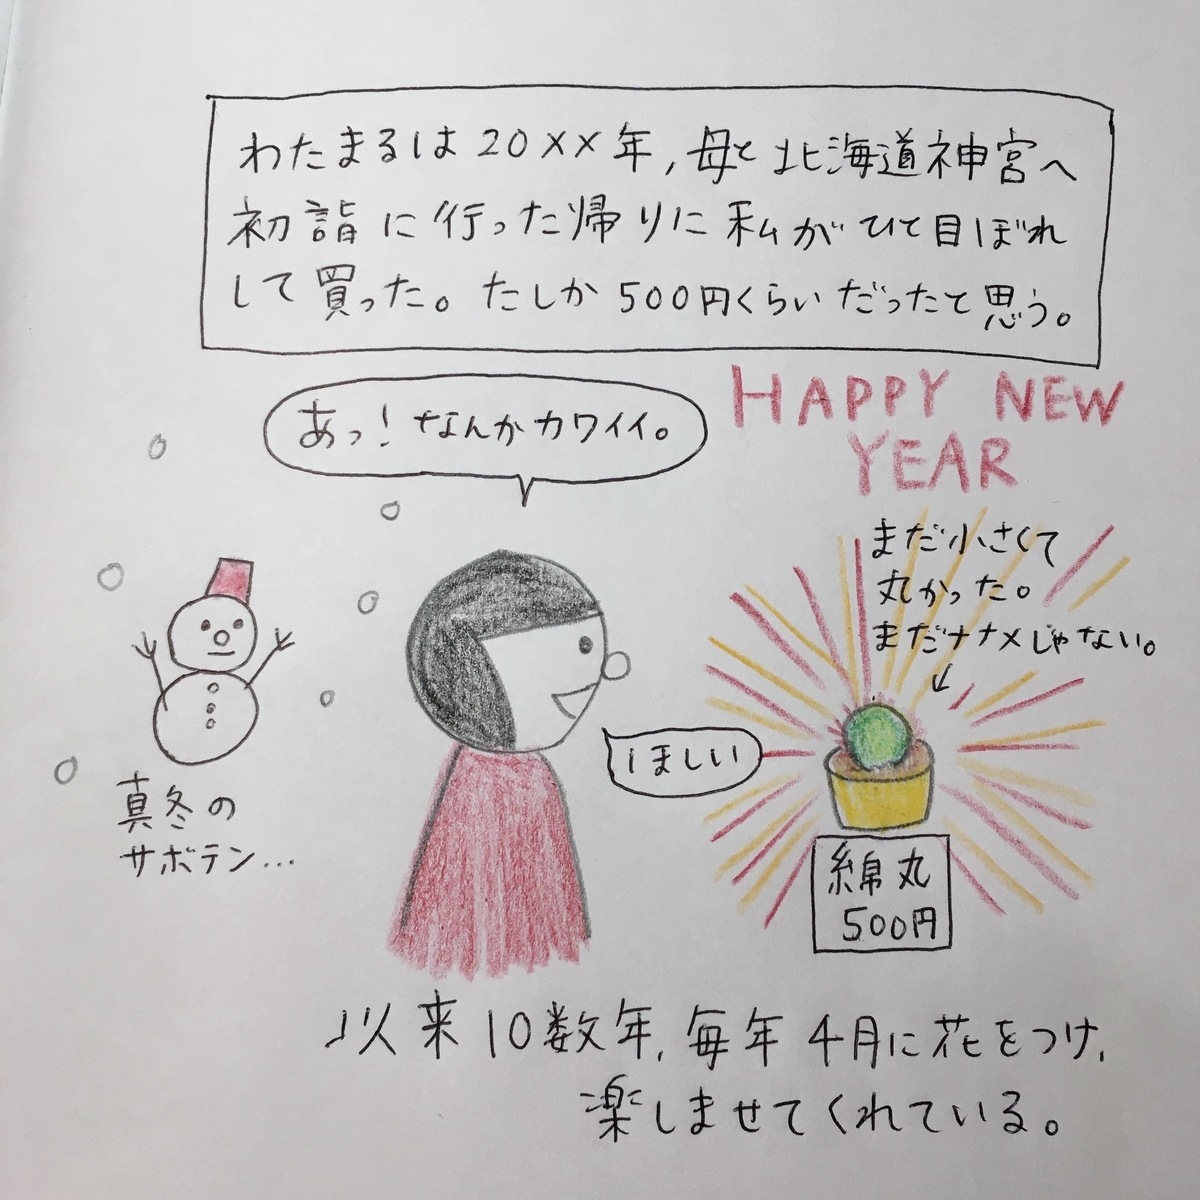 わたまるは20××年,母と北海道神宮へ
初詣に行った帰りに私がひと目ぼれ
して買った。たしか500円くらいだったと思う。
あっ!なんかカワイイ。
HAPPY NEW
YEAR
まだ小さくて
丸かった。
まだナナメじゃない。
ほしい
真冬の
サボテン…
綿丸
500円
以来10数年,毎年4月に花をつけ,
楽しませてくれている。